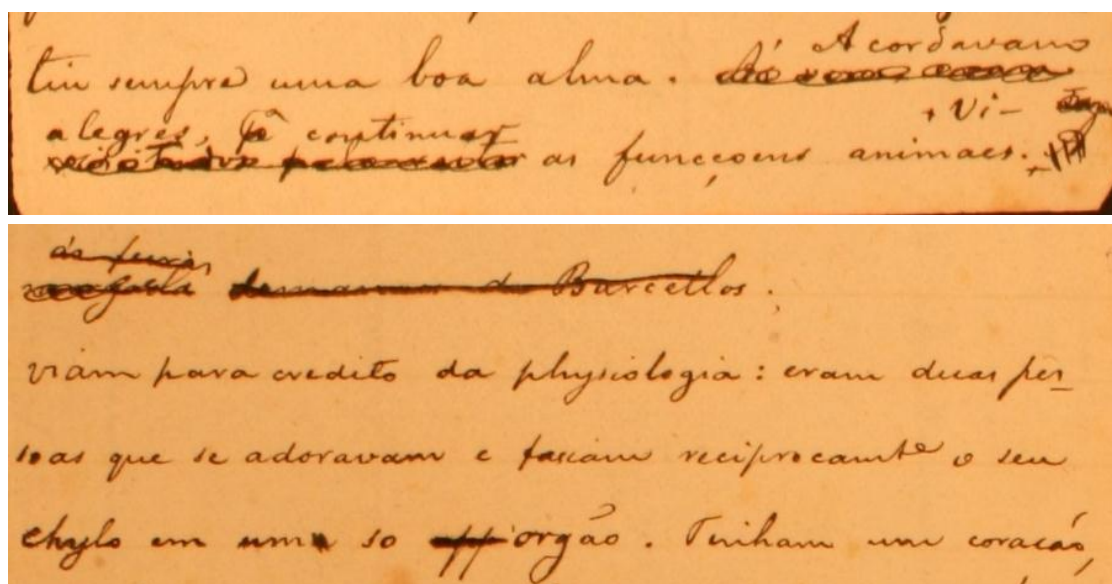 Acordavam
tiu sempre uma boa alma.
alegres, e continuar
as funcçoens animaes. Vi-
ás feiras
de Barcellos.
viam para credito da physiologia: eram duas pes-
soas que se adoravam e faziam reciprocamte o seu
chylo em um so orgão. Tinham um coração,